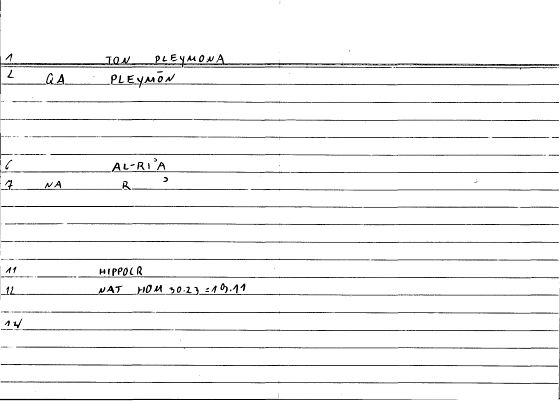 1 TON PLEYMONA
2 GA PLEYMŌN
6 AL-RIʾA
7 NA R ʾ
11 HIPPOCR
12 NAT HOM 30.23 =
14